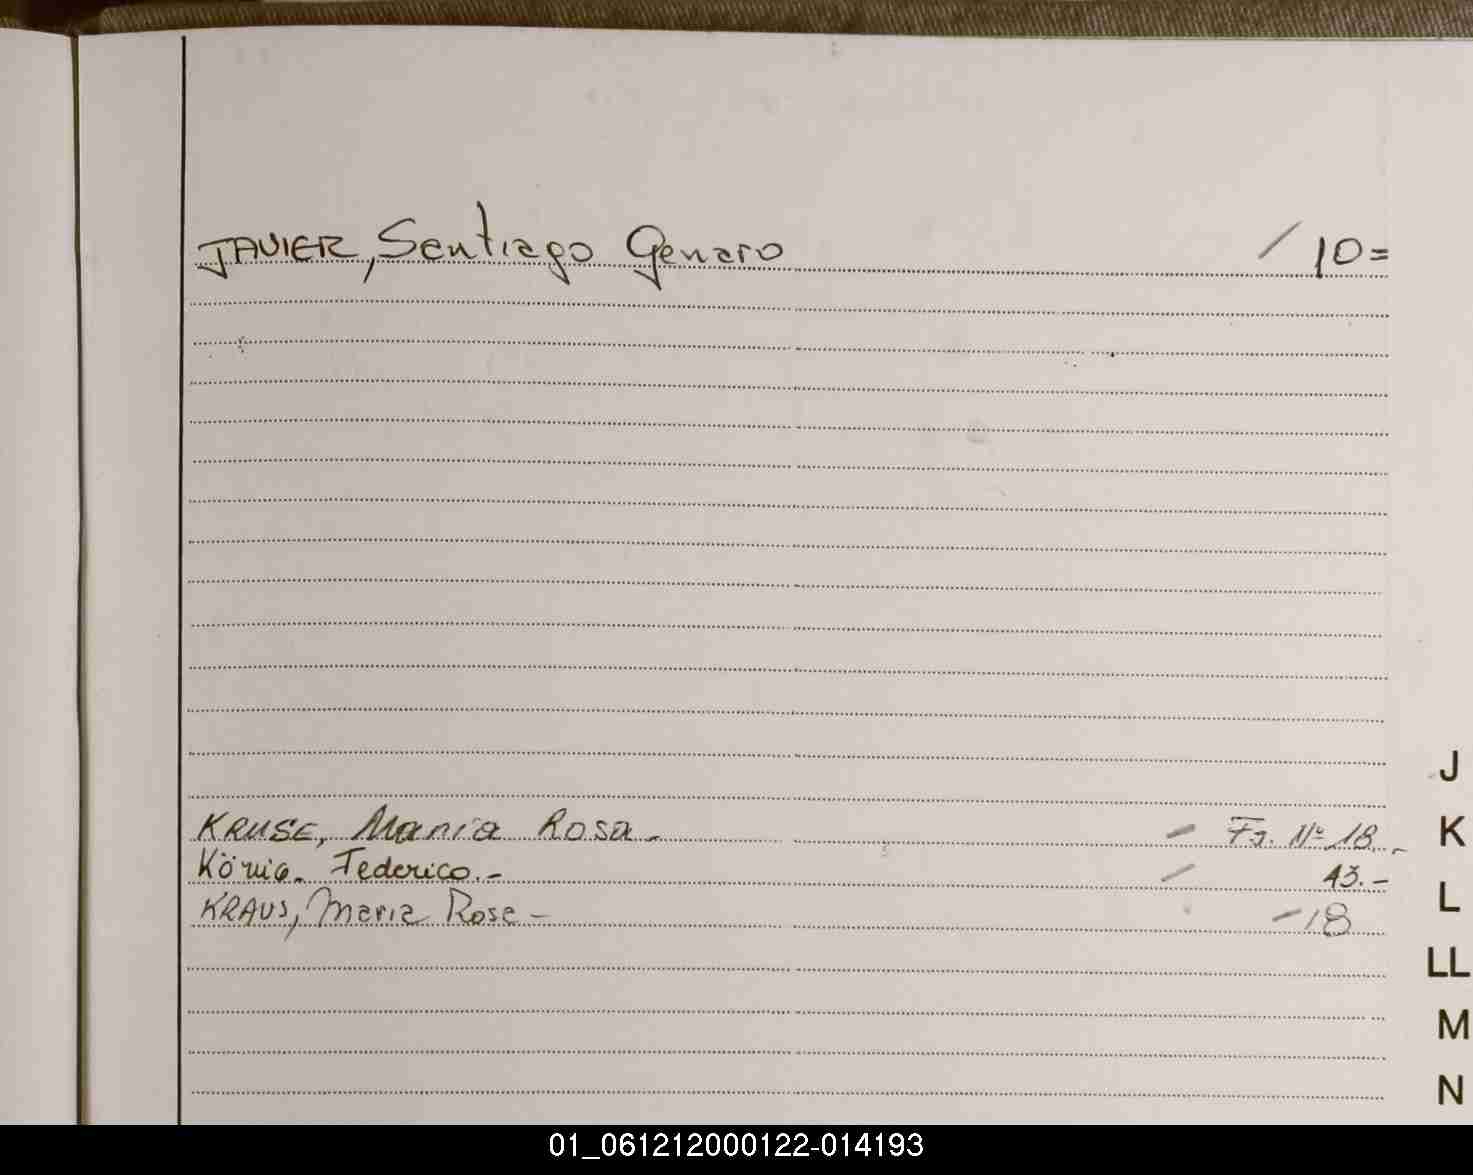 JAVIER, Santiago Genaro / 10=
J
KRUSE, Maria Rosa.- - Fj. Nº 18.-
K
König. Federico.- - 43.-
L
KRAUS, Maria Rosa - - 18
LL
M
N
01_061212000122-014193